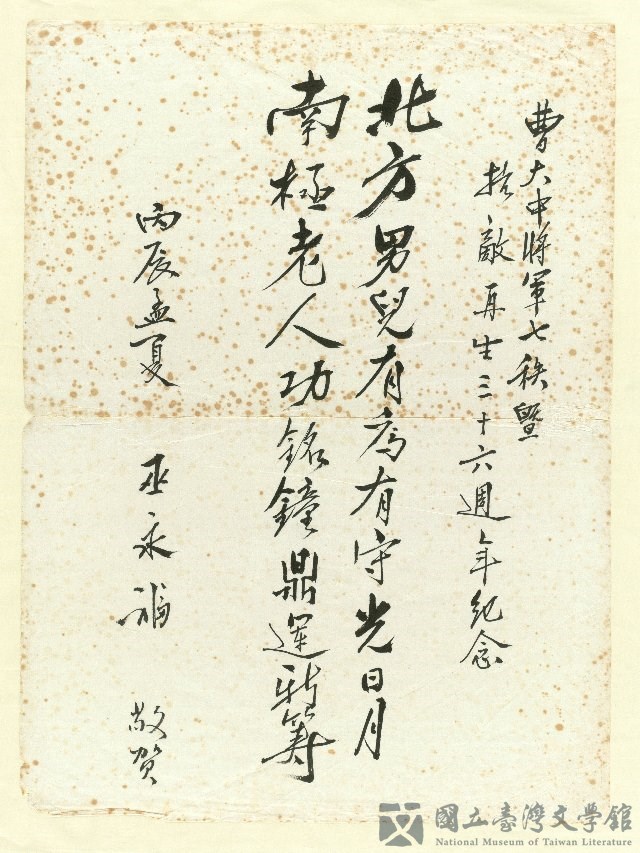 曹大中將軍七秩暨
抗敵再生三十六週年紀念
北方男兒有為有守光日月
南極老人功銘鐘鼎運新籌
丙辰孟夏
巫永福 敬賀
國立臺灣文學館
National Museum of Taiwan Literature